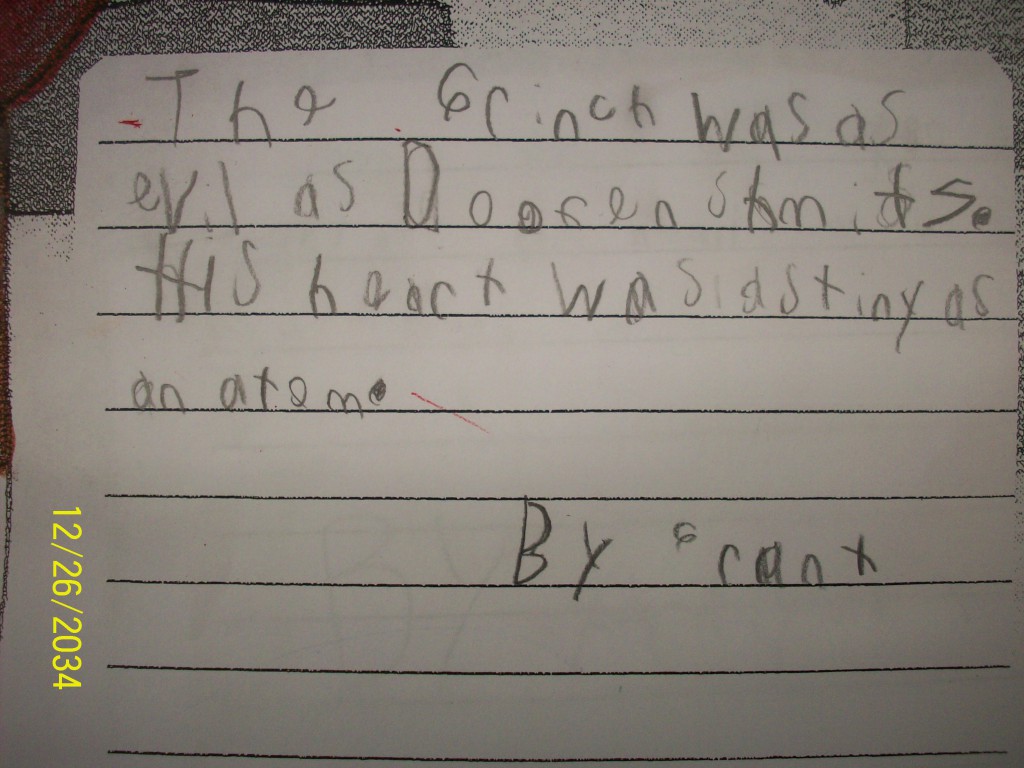 The Grinch was as
evil as Doofenshmitts.
His heart was as tiny as
an atom.
By Grant
12/26/2034